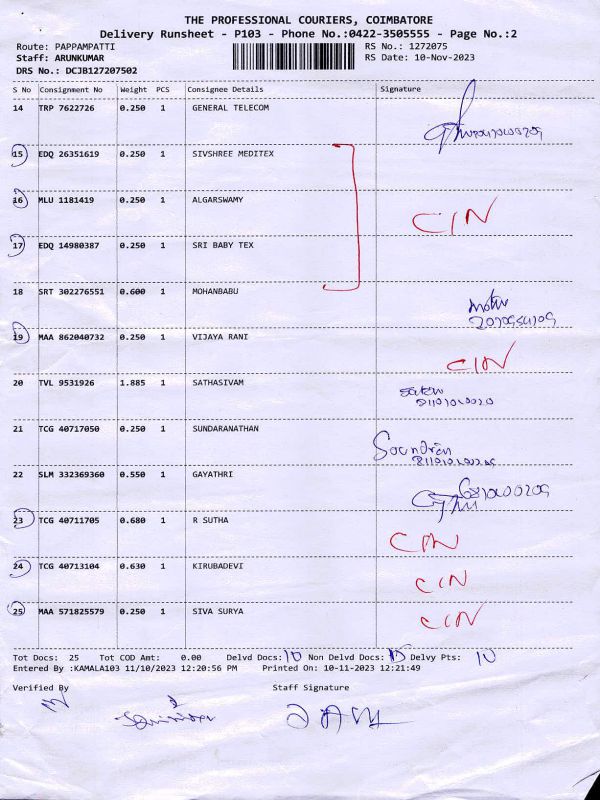 THE PROFESSIONAL COURIERS, COIMBATORE
Delivery Runsheet - P103 - Phone No.:0422-3505555 - Page No.:2
Route: PAPPAMPATTI RS No.: 1272075
Staff: ARUNKUMAR RS Date: 10-Nov-2023
DRS No.: DCJB127207502
S No Consignment No Weight PCS Consignee Details Signature
14 TRP 7622726 0.250 1 GENERAL TELECOM
15 EDQ 26351619 0.250 1 SIVSHREE MEDITEX
16 MLU 1181419 0.250 1 ALGARSWAMY CIN
17 EDQ 14980387 0.250 1 SRI BABY TEX
18 SRT 302276551 0.600 1 MOHANBABU
19 MAA 862040732 0.250 1 VIJAYA RANI CIN
20 TVL 9531926 1.885 1 SATHASIVAM
21 TCG 40717050 0.250 1 SUNDARANATHAN
22 SLM 332369360 0.550 1 GAYATHRI
23 TCG 40711705 0.680 1 R SUTHA CIN
24 TCG 40713104 0.630 1 KIRUBADEVI CIN
25 MAA 571825579 0.250 1 SIVA SURYA CIN
Tot Docs: 25 Tot COD Amt: 0.00 Delvd Docs: 10 Non Delvd Docs: 15 Delvy Pts: 10
Entered By :KAMALA103 11/10/2023 12:20:56 PM Printed On: 10-11-2023 12:21:49
Verified By Staff Signature